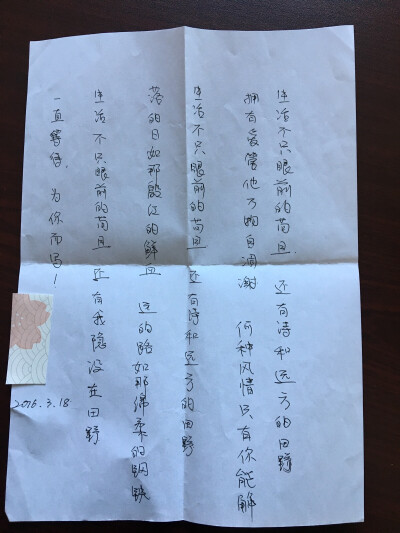 生活不只眼前的苟且. 还有诗和远方的田野
拥有爱管他万物自凋谢 何种风情只有你能解
生活不只眼前的苟且 还有诗和远方的田野
落的日如那殷红的鲜血 远的路如那绵柔的钢铁
生活不只眼前的苟且 还有我隐没在田野
一直 为你而写!
2016.3.18